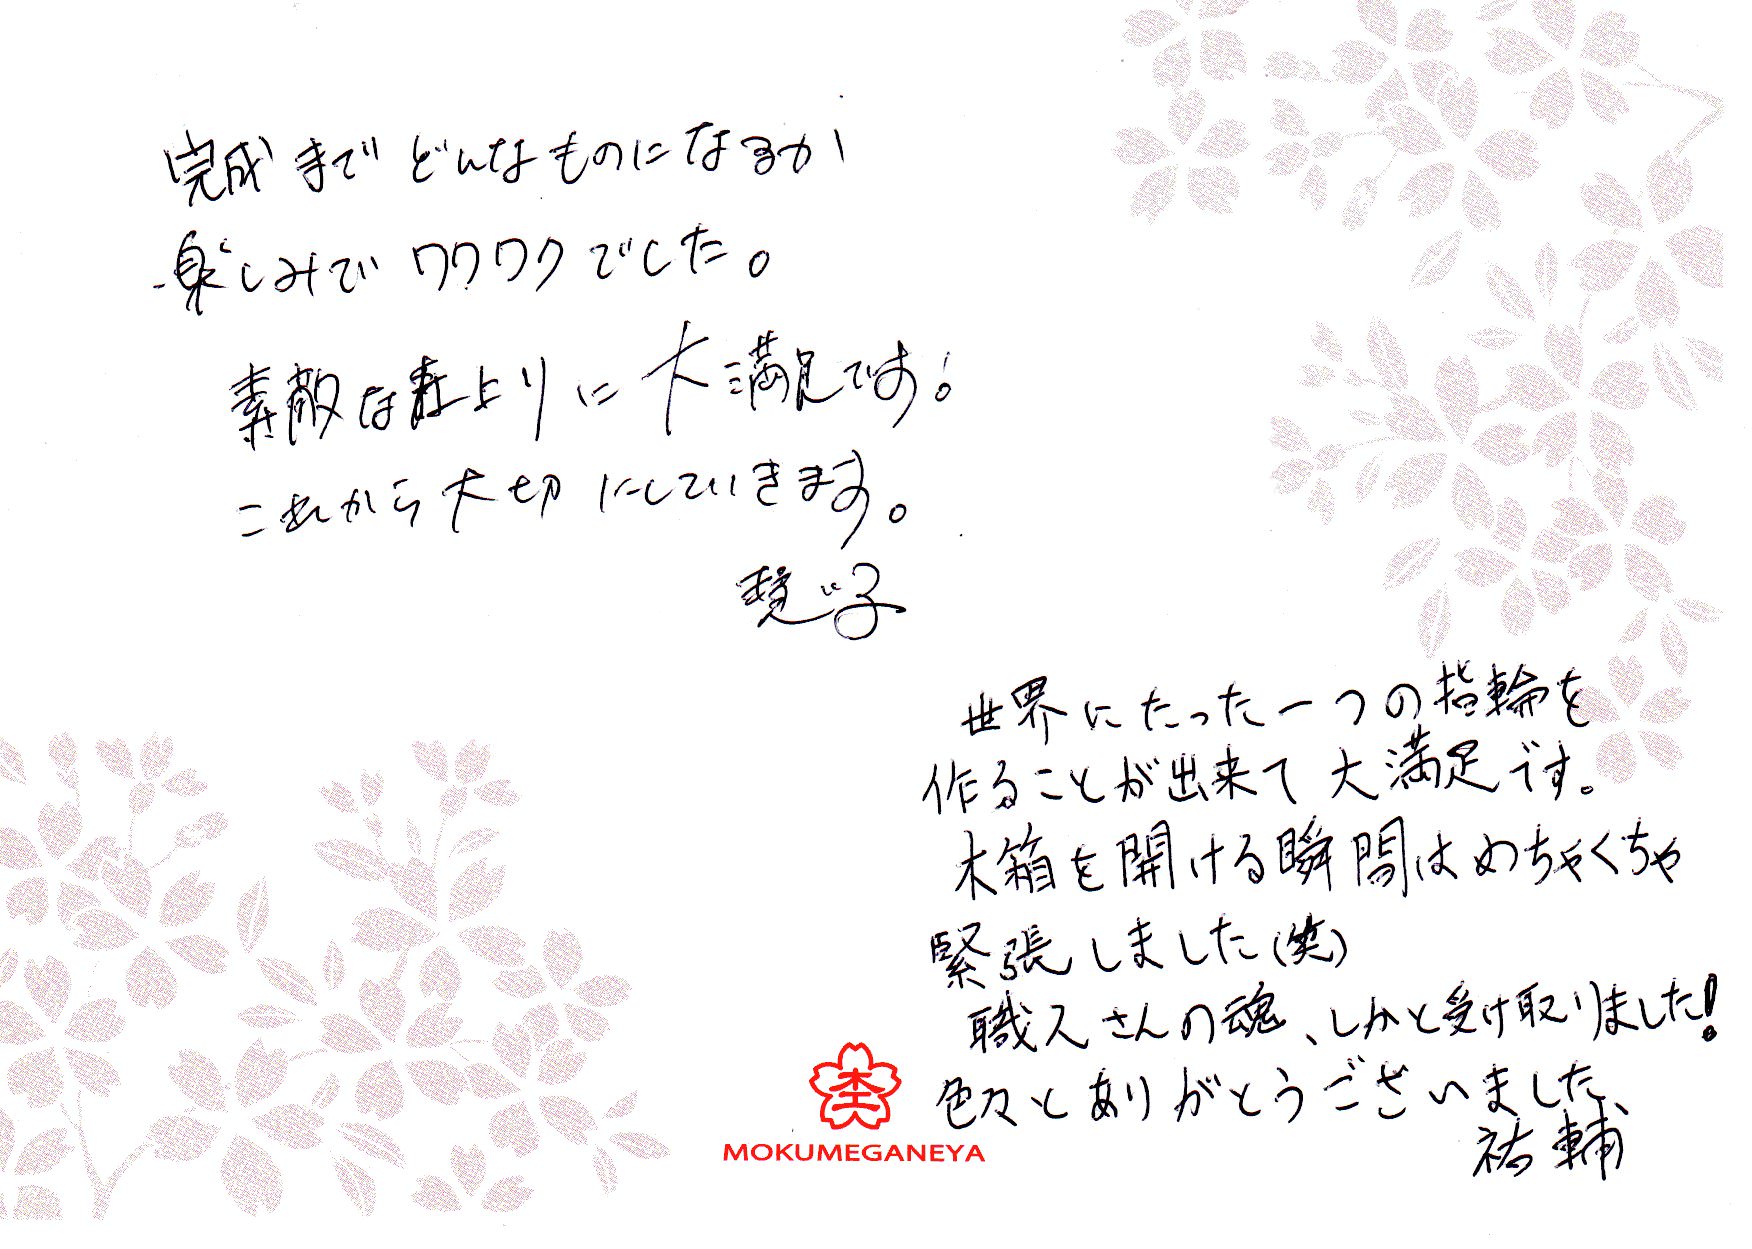 完成までどんなものになるか
楽しみでワクワクでした。
素敵な仕上りに大満足です!
これから大切にしていきます。
子
世界にたった一つの指輪を
作ることが出来て大満足です。
木箱を開ける瞬間はめちゃくちゃ
緊張しました(笑)
職人さんの魂、しかと受け取りました!
色々とありがとうございました、
祐輔
杢
MOKUMEGANEYA